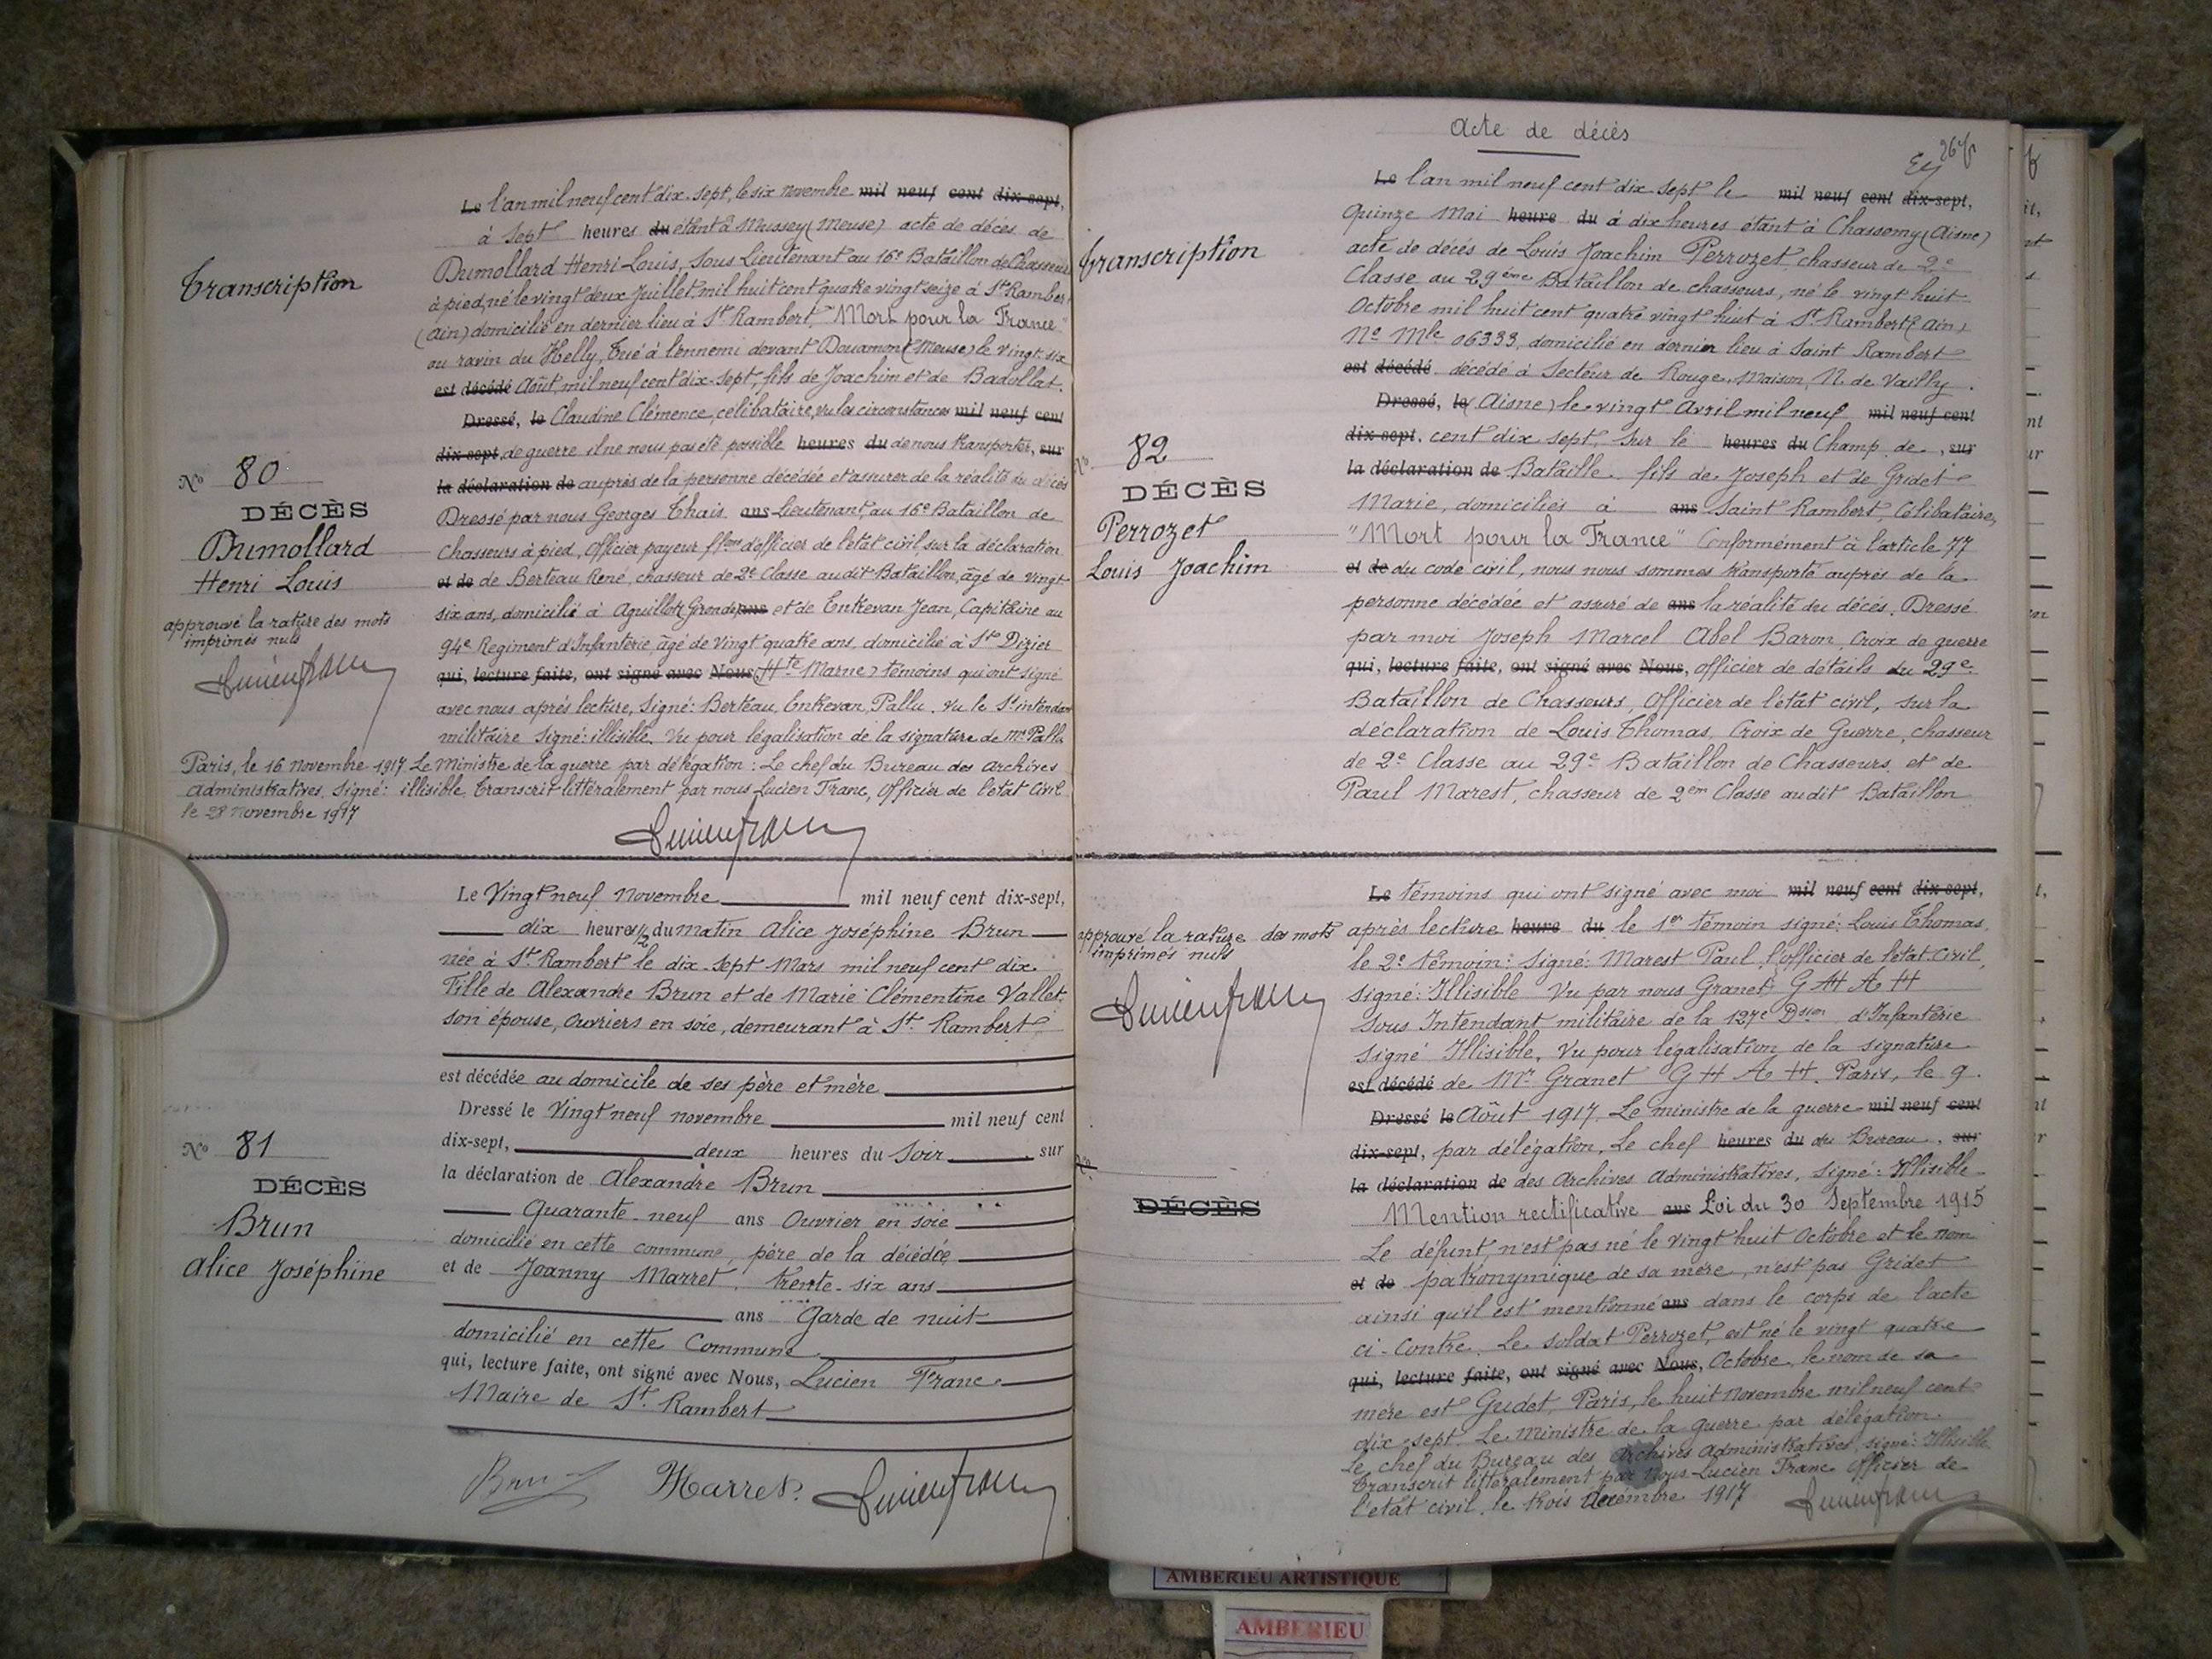 Transcription
Le l'an mil neuf cent dix-sept, le six novembre mil neuf cent dix-sept,
à sept heures du étant à Mussey (Meuse) acte de décès de
Dumollard Henri Louis, Sous Lieutenant au 16e Bataillon de Chasseurs
à pied, né le vingt deux Juillet, mil huit cent quatre vingt seize à St Rambert
(Ain) domicilié en dernier lieu à St Rambert, "Mort pour la France"
au ravin du Helly, Tué à l'ennemi devant Douamont (Meuse) le vingt-six
est décédé Août, mil neuf cent dix-sept, fils de Joachim et de Badollat
Dressé, le Claudine Clémence, célibataire, vu les circonstances mil neuf cent
dix-sept, de guerre il ne nous pas été possible heures du de nous transporter, sur
la déclaration de auprès de la personne décédée et assurer de la réalité du décès
Dressé par nous Georges Thais ans Lieutenant au 16e Bataillon de
Chasseurs à pied, Officier payeur ffons d'officier de l'état civil, sur la déclaration
et de de Berteau René, chasseur de 2e Classe au dit Bataillon, âgé de vingt
six ans, domicilié à Aguillotz Gironde, ans et de Enkevan Jean, Capitaine au
94e Regiment d'Infanterie âgé de Vingt quatre ans, domicilié à St Dizier
qui, lecture faite, ont signé avec Nous (Hte Marne) témoins qui ont signé
avec nous après lecture, Signé: Berteau, Enkevan, Pallu. Vu le St intendan
militaire Signé: illisible. Vu pour légalisation de la signature de Mr Pallu
Paris, le 16 novembre 1917 Le Ministre de la guerre par délégation: Le chef du Bureau des Archives
administratives, Signé: illisible. Transcrit littéralement par nous Lucien Franc, Officier de l'état civil
le 28 Novembre 1917
No 80
DÉCÈS
Dumollard
Henri Louis
approuvé la rature des mots
imprimés nuls
Lucien Franc
Lucien Franc
Le Vingt neuf Novembre mil neuf cent dix-sept,
dix heures 1/2 du matin Alice Joséphine Brun
née à St Rambert le dix-sept Mars mil neuf cent dix.
Fille de Alexandre Brun et de Marie Clémentine Vallet,
son épouse, Ouvriers en soie, demeurant à St. Rambert
est décédée au domicile de ses père et mère
Dressé le Vingt neuf novembre mil neuf cent
dix-sept, deux heures du Soir, sur
la déclaration de Alexandre Brun
Quarante-neuf ans Ouvrier en soie
domicilié en cette commune, père de la décédée
et de Joanny Marret, trente-six ans
ans Garde de nuit
domicilié en cette Commune
qui, lecture faite, ont signé avec Nous, Lucien Franc
Maire de St. Rambert
No 81
DÉCÈS
Brun
Alice Joséphine
Brun Marret. Lucien Franc
Acte de décès
Transcription
Le l'an mil neuf cent dix-sept le mil neuf cent dix-sept,
Quinze Mai heure du à dix heures étant à Chassemy (Aisne)
acte de décès de Louis Joachim Perrozet, chasseur de 2e
Classe au 29ème Bataillon de chasseurs, né le vingt huit
Octobre mil huit cent quatre vingt huit à St Rambert (Ain)
No Mle 06333, domicilié en dernier lieu à Saint Rambert
est décédé décédé à Secteur de Rouge, Maison, N. de Vailly
Dressé, le (Aisne) le vingt Avril mil neuf mil neuf cent
dix-sept, cent dix sept, sur le heures du Champ de, sur
la déclaration de Bataille. fils de Joseph et de Gridet
Marie, domiciliés à ans Saint Rambert, Célibataire,
"Mort pour la France" Conformément à l'article 77
et de du code civil, nous nous sommes transporté auprès de la
personne décédée et assuré de ans la réalité du décès. Dressé
par moi Joseph Marcel Abel Baron, Croix de guerre
qui, lecture faite, ont signé avec Nous, officier de détails du 29e
Bataillon de Chasseurs, Officier de l'état civil, sur la
déclaration de Louis Thomas, Croix de Guerre, chasseur
de 2e Classe au 29e Bataillon de Chasseurs et de
Paul Marest, chasseur de 2em Classe au dit Bataillon
No 82
DÉCÈS
Perrozet
Louis Joachim
Le témoins qui ont signé avec moi mil neuf cent dix-sept,
après lecture heure du le 1er témoin signé: Louis Thomas,
le 2e témoin: Signé: Marest Paul, l'officier de l'état civil,
signé: Illisible Vu par nous Granet, G H A H
Sous Intendant militaire de la 127e Dsion d'Infanterie
Signé Illisible, Vu pour légalisation de la signature
est décédé de Mr Granet G H A H. Paris, le 9
Dressé le Août 1917. Le ministre de la guerre mil neuf cent
dix-sept, par délégation, Le chef heures du du Bureau, sur
la déclaration de des Archives administratives, Signé: Illisible
Mention rectificative ans Loi du 30 Septembre 1915
Le défunt, n'est pas né le vingt huit Octobre et le nom
et de patronymique de sa mère, n'est pas Gridet
ainsi qu'il est mentionné ans dans le corps de l'acte
ci-contre. Le soldat Perrozet, est né le vingt quatre
qui, lecture faite, ont signé avec Nous, Octobre, le nom de sa
mère est Gudet. Paris, le huit novembre mil neuf cent
dix-sept. Le Ministre de la guerre par délégation.
Le chef du Bureau des Archives administratives, signé: Illisible
Transcrit littéralement par Nous Lucien Franc Officier de
l'état civil, le trois décembre 1917 Lucien Franc
approuvé la rature des mots
imprimés nuls
Lucien Franc
No
DÉCÈS
AMBERIEU ARTISTIQUE
AMBERIEU